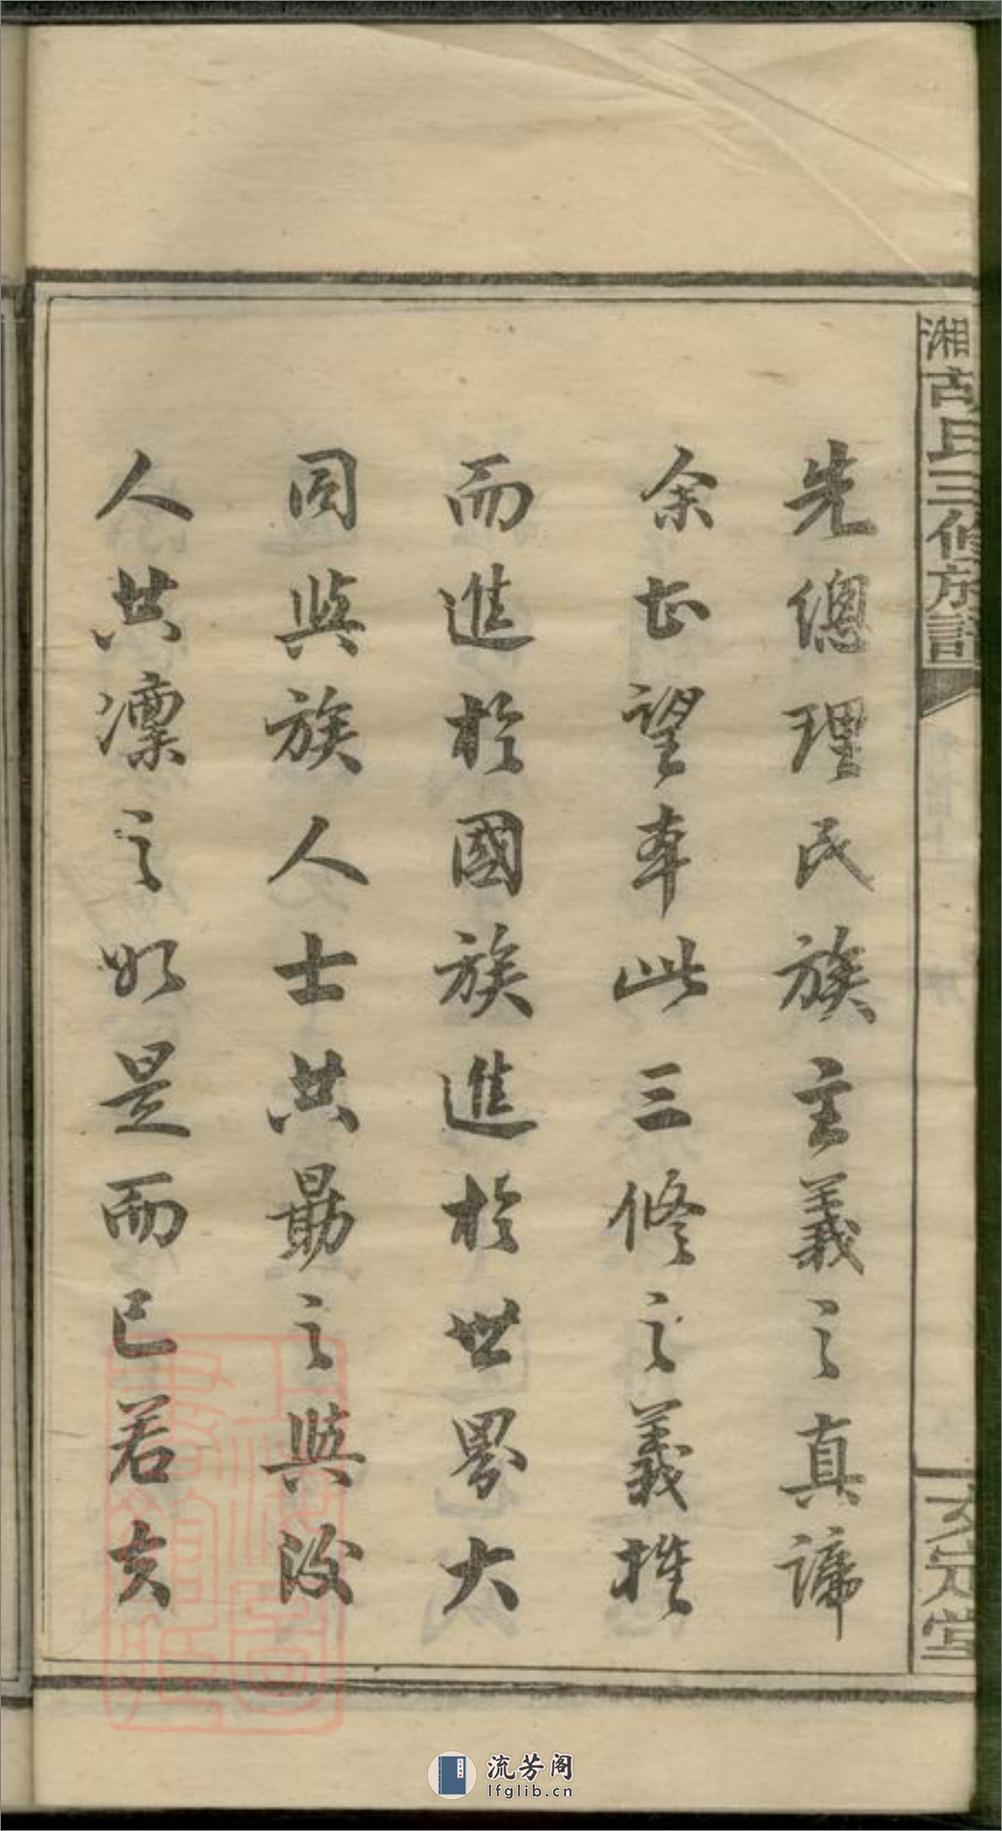 氏三修族譜
先總理民族主義之真諦
余望本此三修之義推
而進於國族進於世界大
同與族人士共勗之與後
人共凜之如是而已若夫
堂
上海圖書館藏
流芳阁
lfglib.cn